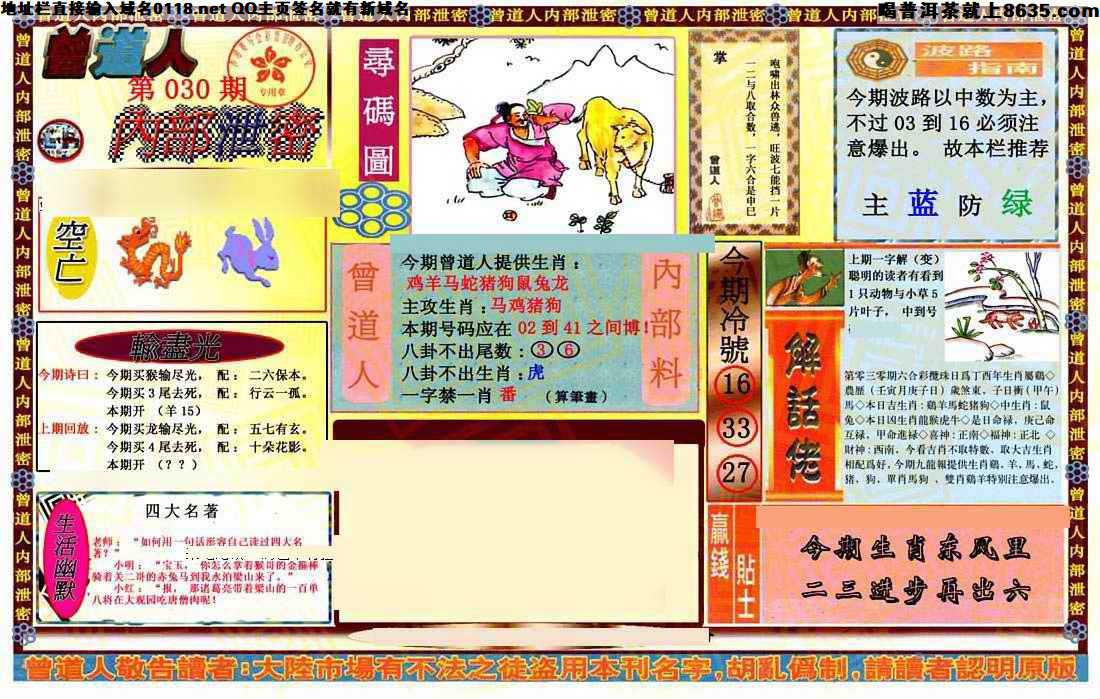 地址栏直接输入域名0118.net QQ主页签名就有新域名
喝普洱茶就上8635.com
曾道人内部泄密
曾道人
第 030 期
内部泄密
专用章
空亡
輸盡光
今期诗曰：今期买猴输尽光， 配：二六保本。
今期买3尾去死， 配：行云一孤。
本期开 （羊15）
上期回放：今期买龙输尽光， 配：五七有玄。
今期买4尾去死， 配：十朵花影。
本期开 （？？）
生活幽默
四大名著
老师：“如何用一句话形容自己读过四大名
著？”
小明：“宝玉， 你怎么拿着猴哥的金箍棒
骑着关二哥的赤兔马到我水泊梁山来了。”
小红：“报， 那诸葛亮带着梁山的一百单
八将在大观园吃唐僧肉呢!
尋碼圖
曾道人
内部料
今期曾道人提供生肖：
鸡羊马蛇猪狗鼠兔龙
主攻生肖：马鸡猪狗
本期号码应在 02 到 41 之间博!
八卦不出尾数：③⑥
八卦不出生肖：虎
一字禁一肖 番 （算筆畫）
掌
咆啸出林众兽逃，旺波七能挡一片
一二与八取合数，一字六合是申巳
曾道人
波路
指南
今期波路以中数为主，
不过 03 到 16 必须注
意爆出。 故本栏推荐
主 蓝 防 绿
今期冷號
16
33
27
上期一字解（变）
聪明的读者有看到
1 只动物与小草 5
片叶子， 中到号
解話佬
第零三零期六合彩攪珠日爲丁酉年生肖屬鷄◇
農歷（壬寅月庚子日）歲煞東，子日衝(甲午)
馬◇本日吉生肖:鷄羊馬蛇猪狗◇中生肖:鼠
兔◇本日凶生肖龍猴虎牛◇是日命禄，庚己命
互禄，甲命進禄◇喜神:正南◇福神:正北 ◇
財神:西南。今看吉肖不取特數，取大吉生肖
相配爲好。今期九龍報提供生肖鷄、羊、馬、蛇、
猪、狗。單肖馬狗 、雙肖鷄羊特别注意爆出。
贏錢
貼士
今期生肖东风里
二三进步再出六
曾道人敬告讀者:大陸市場有不法之徒盗用本刊名字,胡亂僞制,請讀者認明原版